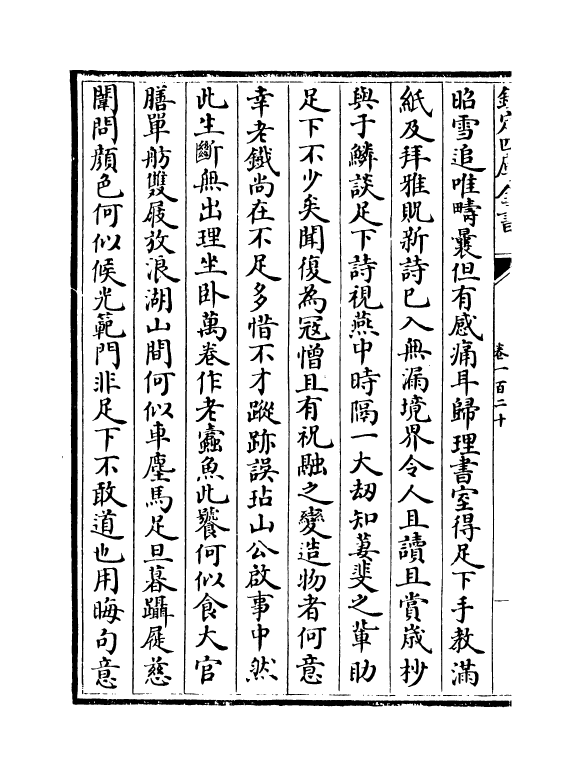 欽定四庫全書
卷一百二十
昭雪追唯疇曩但有感痛耳歸理書室得足下手教滿
紙及拜雅貺新詩已入無漏境界令人且讀且賞歲杪
與于鱗談足下詩視燕中時隔一大刼知萋斐之軰助
足下不少矣聞復為冦憎且有祝融之變造物者何意
幸老鐵尚在不足多惜不才蹤跡誤玷山公啟事中然
此生斷無出理坐卧萬卷作老蠧魚此饕何似食大官
膳單舫雙屐放浪湖山間何似車塵馬足旦暮躡屣慈
闈問顔色何似候光範門非足下不敢道也用晦句意